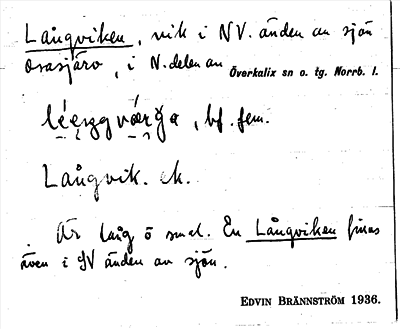 Långviken, vik i NV. änden av sjön
Orasjärv, i N. delen av
Överkalix sn o. tg. Norrb. l.
bf. fem.
Långvik.
Är lång o smal. En Långviken finns
även i SV änden av sjön.
EDVIN BRÄNNSTRÖM 1936.